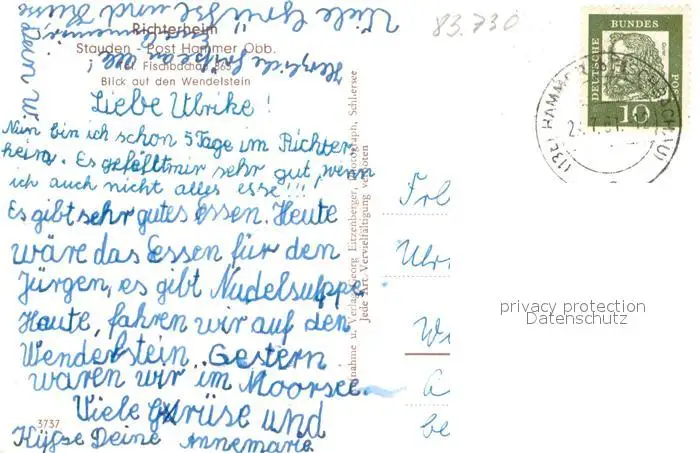 Viele Grüsse und Küsse
Dein W.
83.730
Richterheim
Stauden - Post Hammer Obb.
Tel. Fischbachau 365
Blick auf den Wendelstein
Herzliche Grüße an Alle!
Liebe Ulrike!
Nun bin ich schon 5 Tage im Richter
heim. Es gefällt mir sehr gut, wenn
ich auch nicht alles esse!!!
Es gibt sehr gutes essen. Heute
wäre das Essen für den
Jürgen, es gibt Nudelsuppe
Haute, fahren wir auf den
Wendelstein. Gestern
waren wir im Moorsee.
Viele grüse und
Küsse Deine Annemarie
3737
Aufnahme u. Verlag Georg Eitzenberger, Photograph, Schliersee
Jede Art Vervielfältigung verboten
DEUTSCHE BUNDESPOST
10
Frl
Ulri
privacy protection
Datenschutz
be